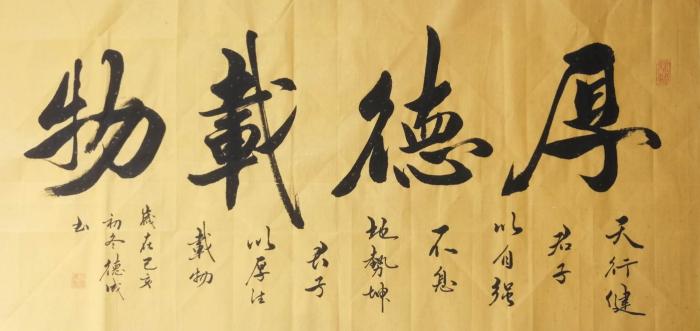 厚德載物
天行健
君子
以自强
不息
地勢坤
君子
以厚德
載物
歲在己亥
初冬德成
书